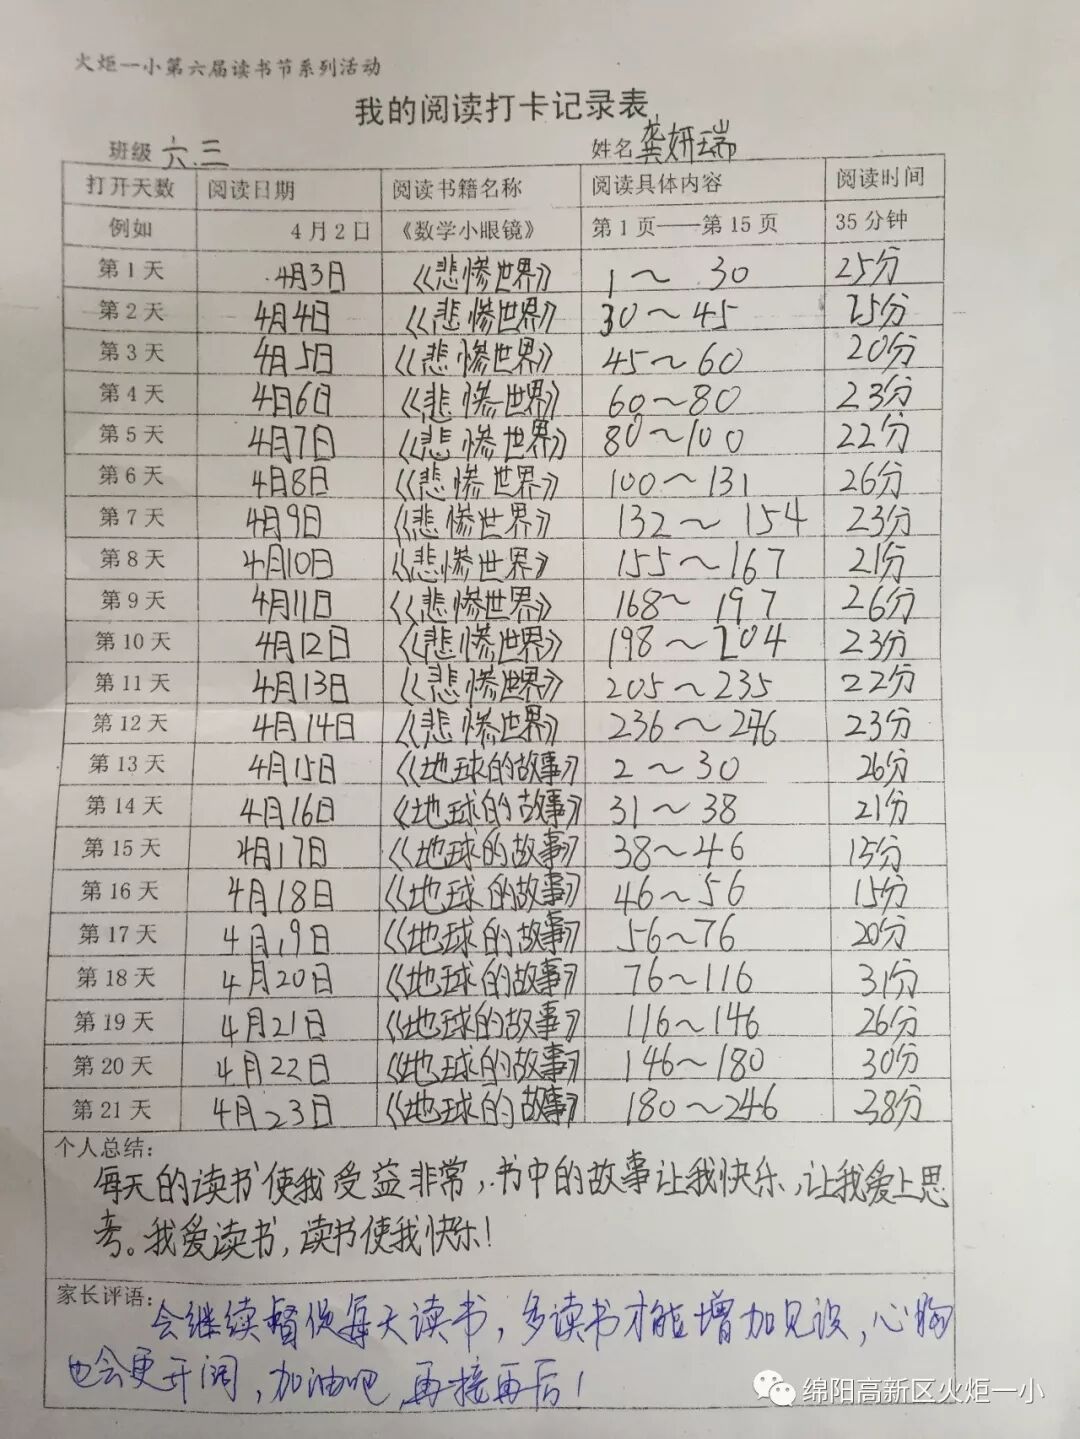 火炬一小第六届读书节系列活动
我的阅读打卡记录表
班级 六.三 姓名 龚妍瑞
打开天数 阅读日期 阅读书籍名称 阅读具体内容 阅读时间
例如 4月2日 《数学小眼镜》 第1页——第15页 35分钟
第1天 4月3日 《悲惨世界》 1～30 25分
第2天 4月4日 《悲惨世界》 30～45 15分
第3天 4月5日 《悲惨世界》 45～60 20分
第4天 4月6日 《悲惨世界》 60～80 23分
第5天 4月7日 《悲惨世界》 80～100 22分
第6天 4月8日 《悲惨世界》 100～131 26分
第7天 4月9日 《悲惨世界》 132～154 23分
第8天 4月10日 《悲惨世界》 155～167 21分
第9天 4月11日 《悲惨世界》 168～197 26分
第10天 4月12日 《悲惨世界》 198～204 23分
第11天 4月13日 《悲惨世界》 205～235 22分
第12天 4月14日 《悲惨世界》 236～246 23分
第13天 4月15日 《地球的故事》 2～30 26分
第14天 4月16日 《地球的故事》 31～38 21分
第15天 4月17日 《地球的故事》 38～46 15分
第16天 4月18日 《地球的故事》 46～56 15分
第17天 4月19日 《地球的故事》 56～76 20分
第18天 4月20日 《地球的故事》 76～116 31分
第19天 4月21日 《地球的故事》 116～146 26分
第20天 4月22日 《地球的故事》 146～180 30分
第21天 4月23日 《地球的故事》 180～246 38分
个人总结:
每天的读书使我受益非常,书中的故事让我快乐,让我爱上思
考。我爱读书,读书使我快乐!
家长评语:
会继续督促每天读书,多读书才能增加见识,心胸
也会更开阔,加油吧,再接再厉!
绵阳高新区火炬一小